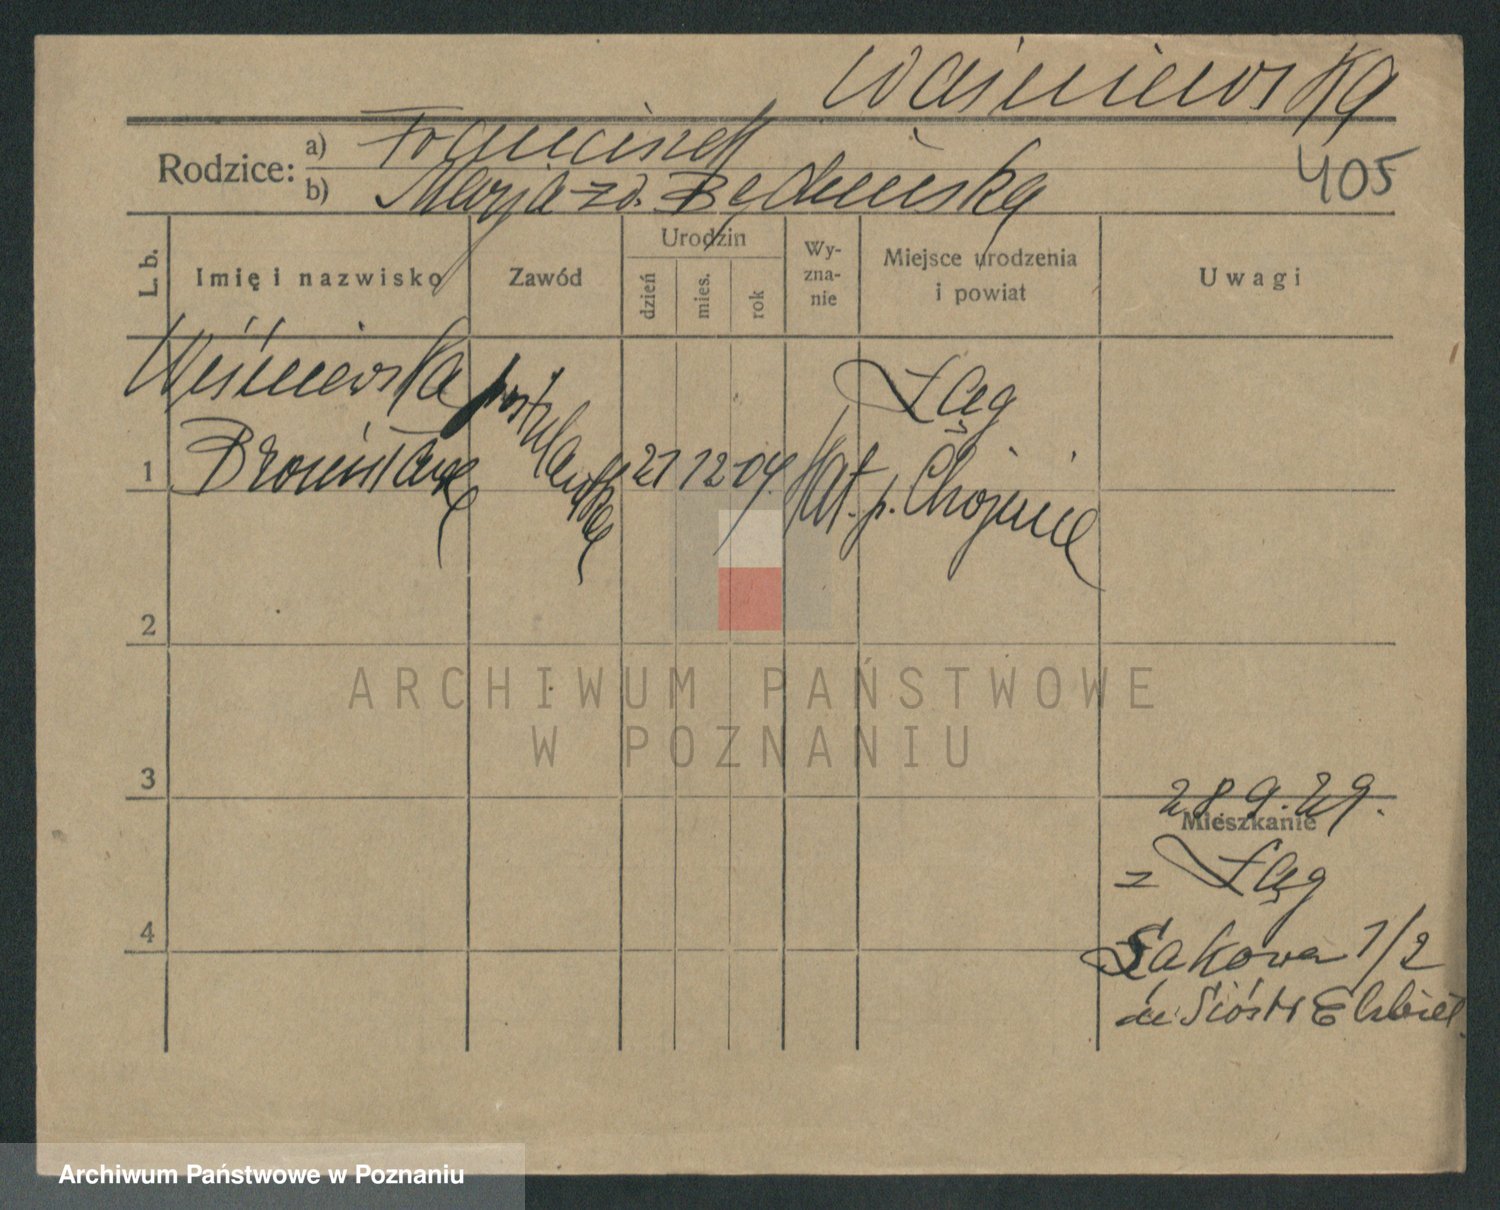 Waśniewska
Rodzice: a) Franciszek
b) Marja zd. Będzińska
405
L. b.
Imię i nazwisko
Zawód
Urodzin
dzień
mies.
rok
Wy-
zna-
nie
Miejsce urodzenia
i powiat
Uwagi
Waśniewska
Bronisława
postulantka
1
21 12 04
kat.
Łąg
p. Chojnice
2
3
4
28.9.29.
Mieszkanie
z Łąg
Łąkowa 1/2
Sióstr Elżbiet.
ARCHIWUM PAŃSTWOWE
W POZNANIU
Archiwum Państwowe w Poznaniu